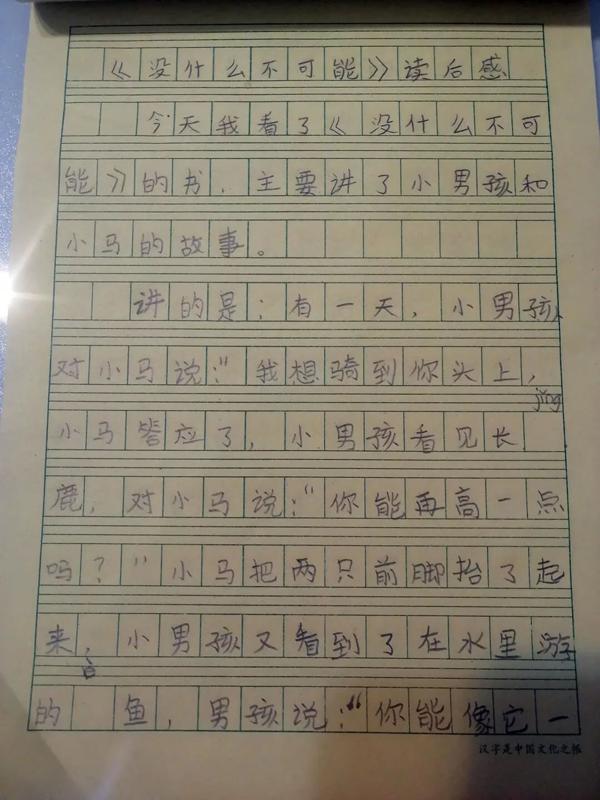 《没什么不可能》读后感
今天我看了《没什么不可
能》的书，主要讲了小男孩和
小马的故事。
讲的是：有一天，小男孩
对小马说：“我想骑到你头上，
jǐng
小马答应了，小男孩看见长
鹿，对小马说：“你能再高一点
吗？”小马把两只前脚抬了起
来，小男孩又看到了在水里游
的 鱼，男孩说：“你能像它一
汉字是中国文化之根